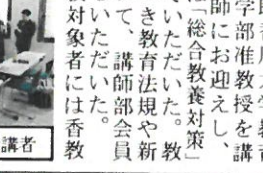 学部准教授を講
師にお迎えし、
「総合教養対策」
いただいた。教
き教育法規や新
て、講師部会員
いただいた。
対象者には香教
講者